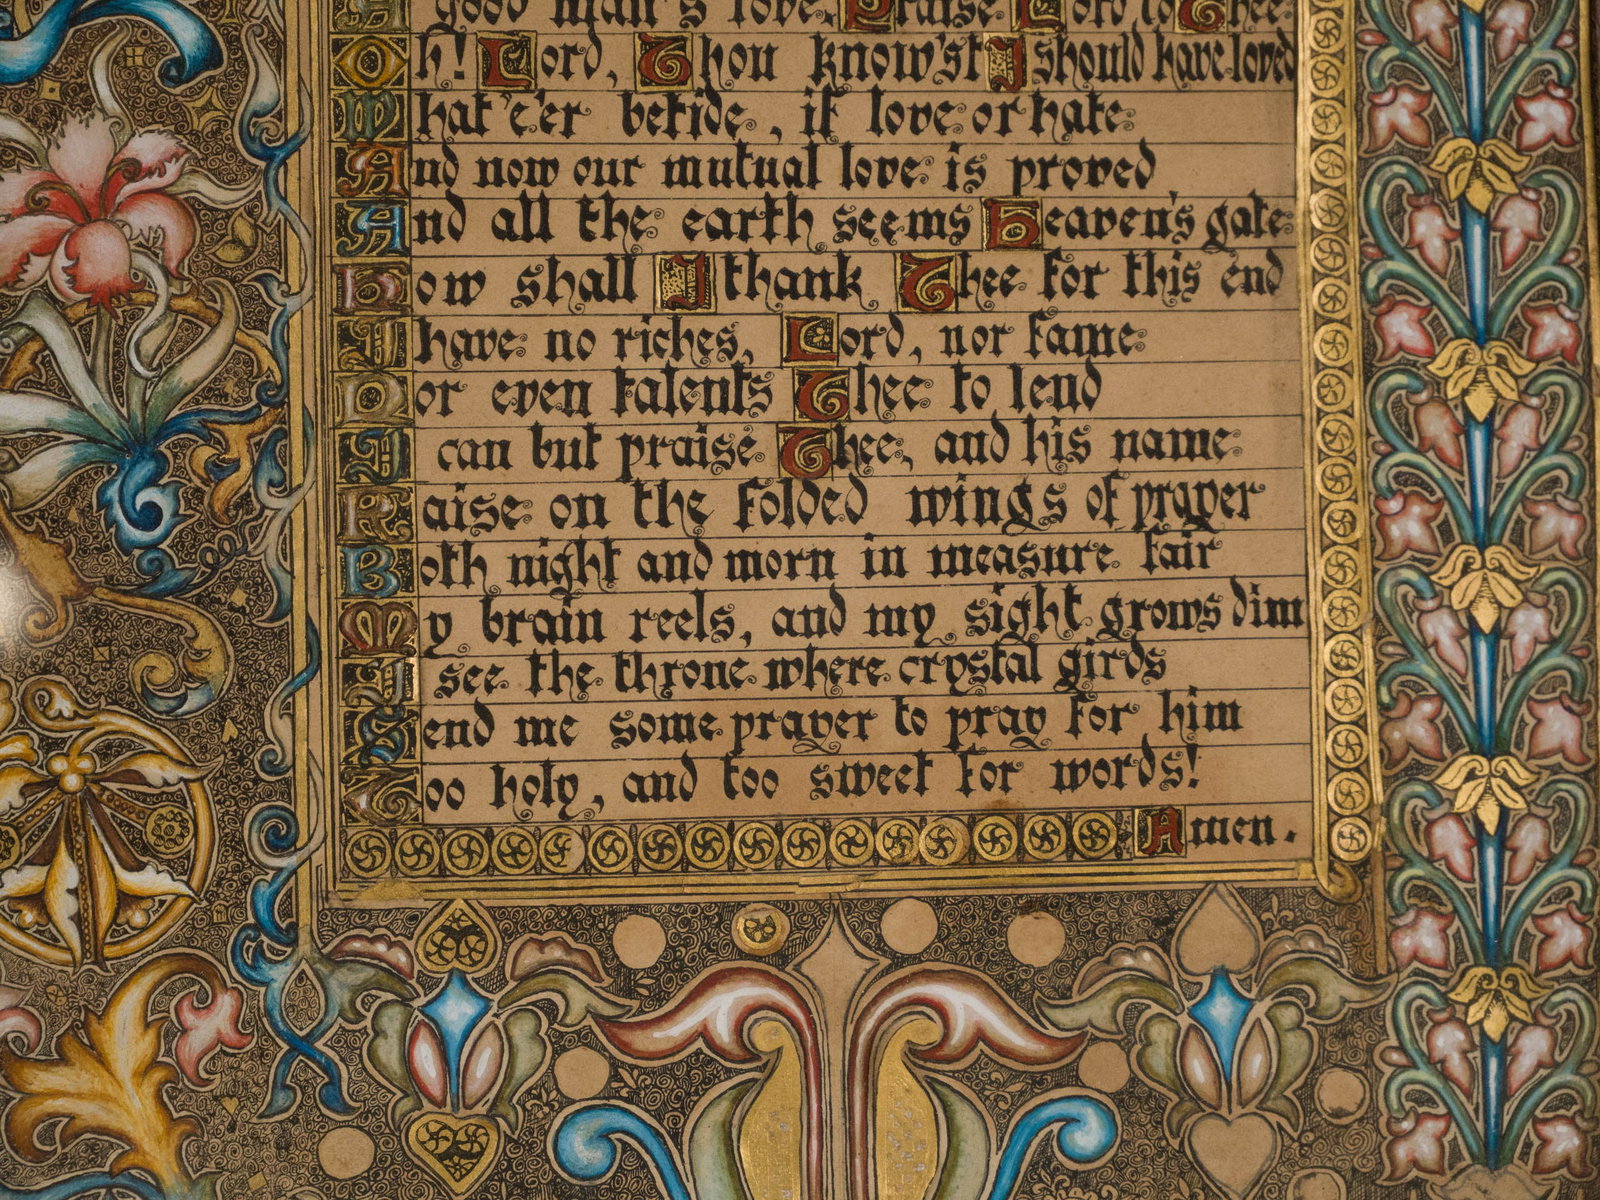 A good man's love. Praise Lord to Thee
Oh! Lord, Thou know'st I should have loved
What e'er betide, if love or hate
And now our mutual love is proved
And all the earth seems Heaven's gate
How shall I thank Thee for this end
I have no riches, Lord, nor fame
Or even talents Thee to lend
I can but praise Thee, and his name
Raise on the folded wings of prayer
Both night and morn in measure fair
My brain reels, and my sight grows dim
I see the throne where crystal girds
Send me some prayer to pray for him
Too holy, and too sweet for words!
Amen.